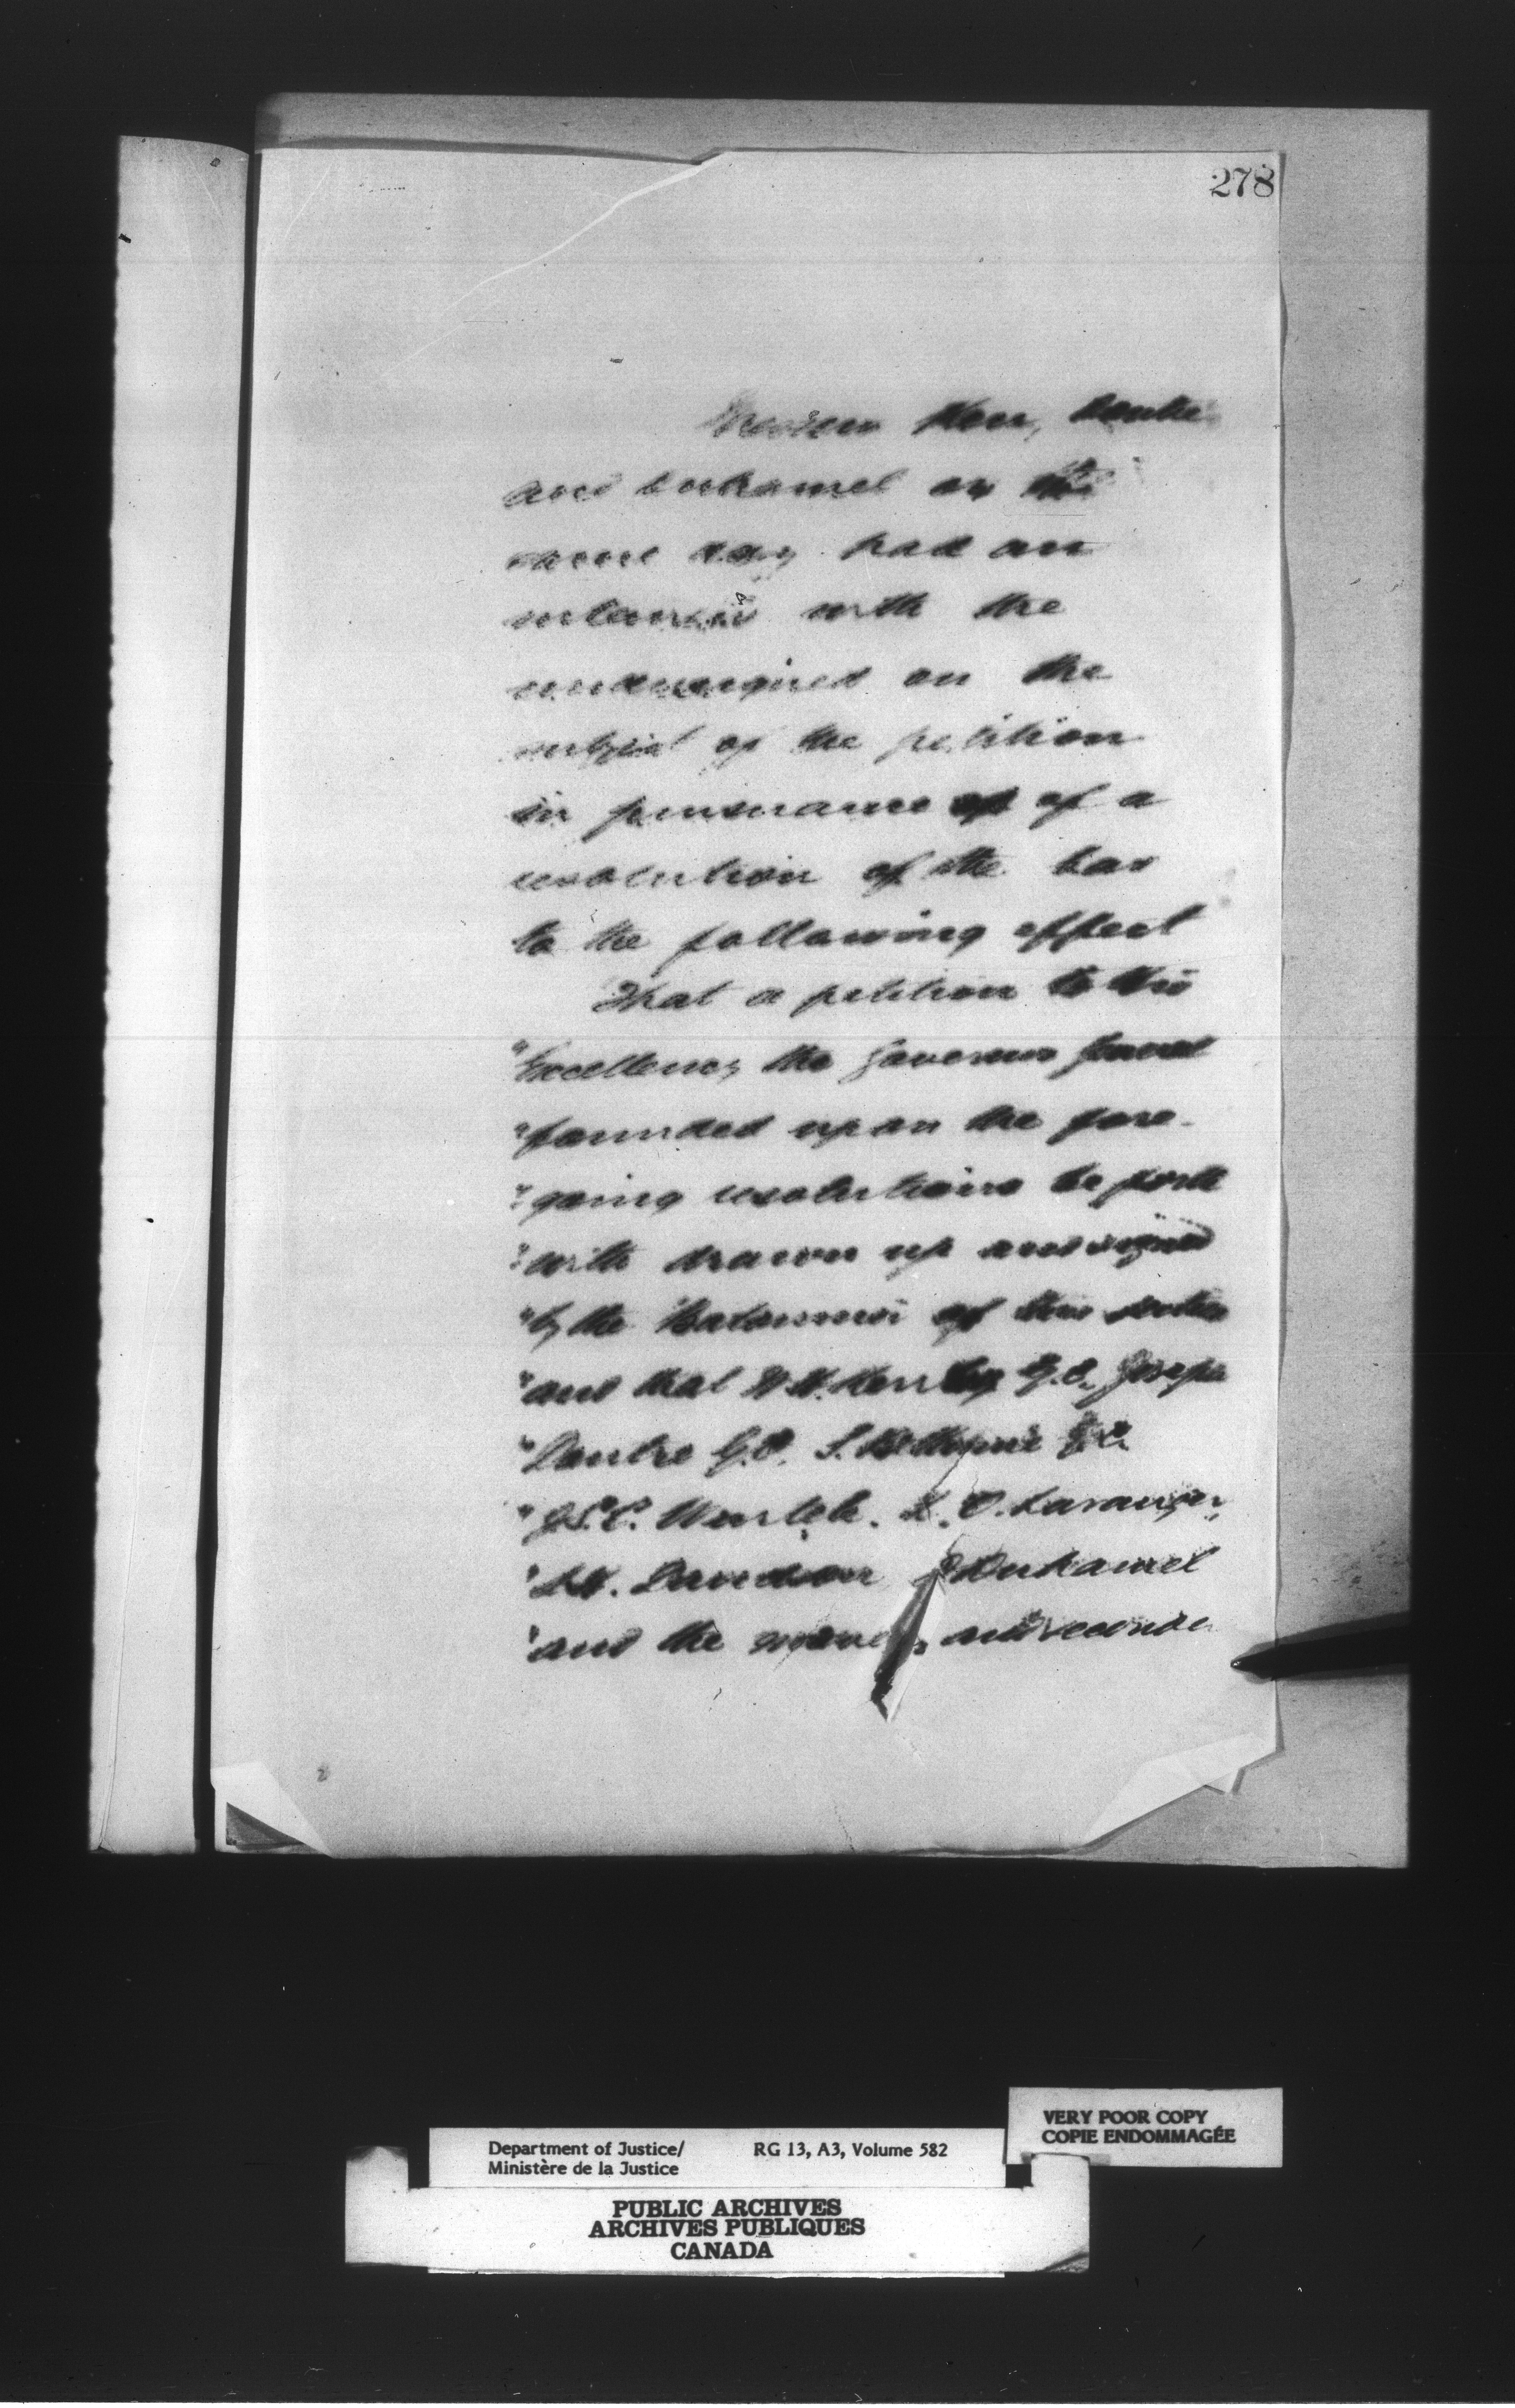 278
Messrs Kerr, Doutre
and Duhamel on the
same day had an
interview with the
undersigned on the
subject of the petition
in pursuance of of a
resolution of the bar
to the following effect
That a petition to His
"Excellency the Governor General
"founded upon the fore-
"going resolutions be forth
"with drawn up and signed
"by the Batonnier of this section
"and that W.H. Kerr Q.C. Joseph
"Doutre Q.C. S. Bethune Q.C.
"J.S.C. Wurtele. L.O. Loranger,
" Davidson Duhamel
"and the movers and seconder
Department of Justice/ RG 13, A3, Volume 582
Ministère de la Justice
VERY POOR COPY
COPIE ENDOMMAGÉE
PUBLIC ARCHIVES
ARCHIVES PUBLIQUES
CANADA